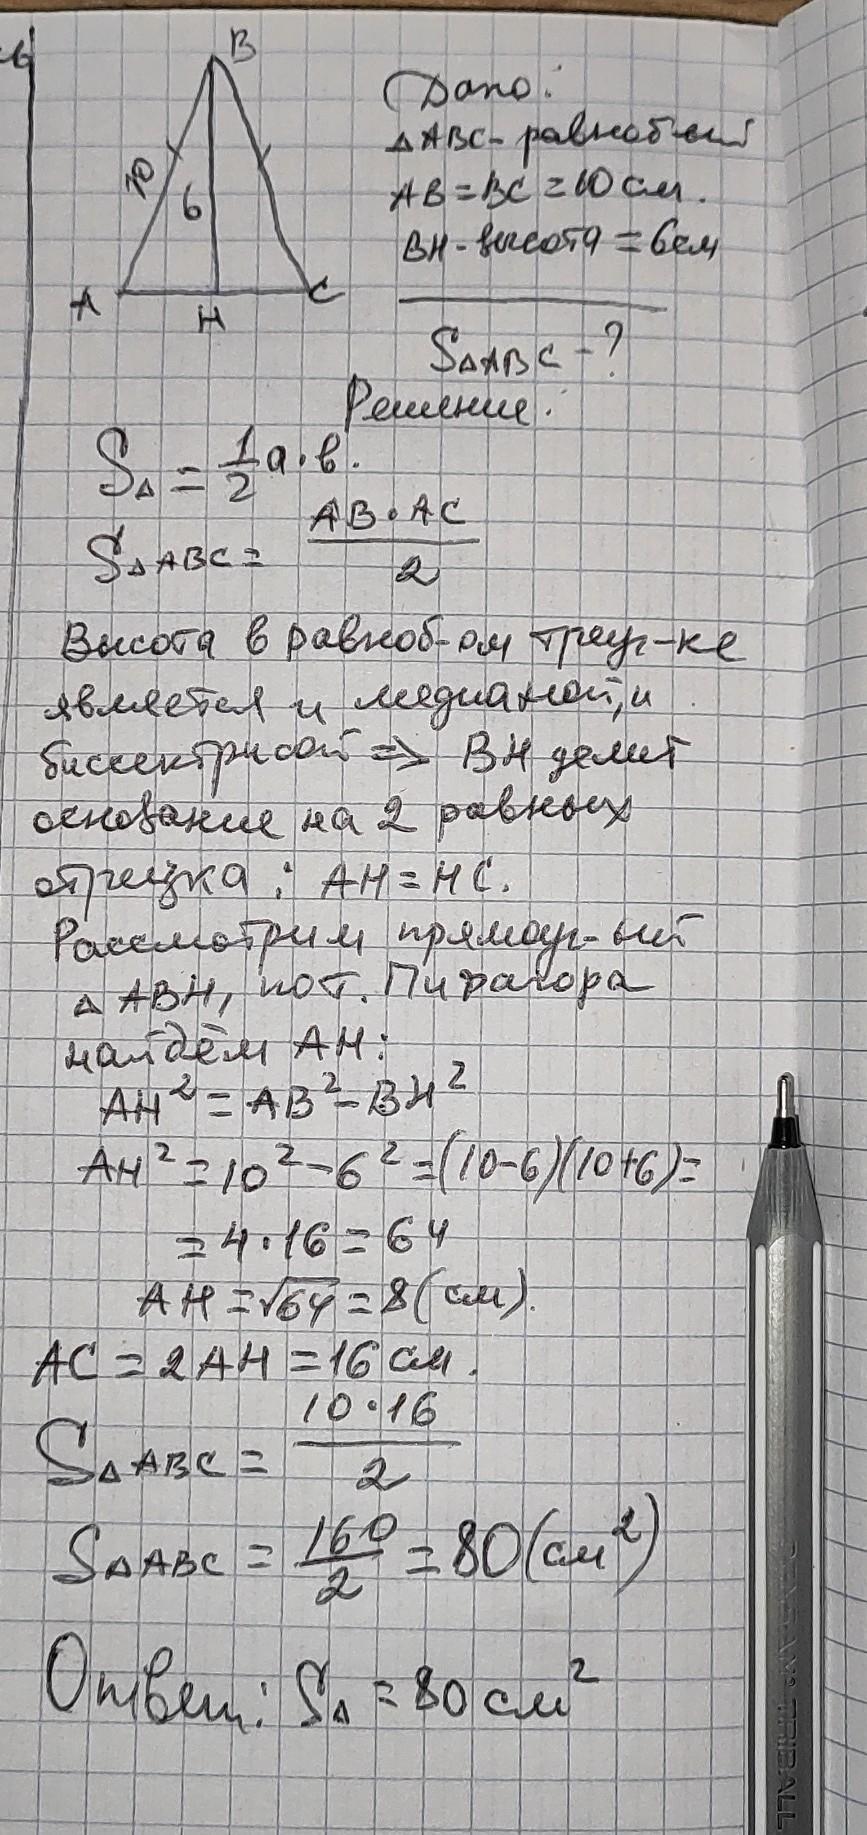 B
Дано:
△ABC - равноб-ый
10
AB = BC = 10 см.
6
BH - высота = 6см
A
C
H
S△ABC - ?
Решение:
S△ = 1/2 a·в.
S△ABC = AB·AC/2
Высота в равноб-ом треуг-ке
является и медианой, и
биссектрисой => BH делит
основание на 2 равных
отрезка: AH = HC.
Рассмотрим прямоуг-ый
△ ABH, по т. Пифагора
найдём AH:
AH² = AB² - BH²
AH² = 10² - 6² = (10-6)(10+6) =
= 4·16 = 64
AH = √64 = 8 (см).
AC = 2AH = 16 см.
S△ABC = 10·16/2
S△ABC = 160/2 = 80 (см²)
Ответ: S△ = 80 см²
TRIBALL